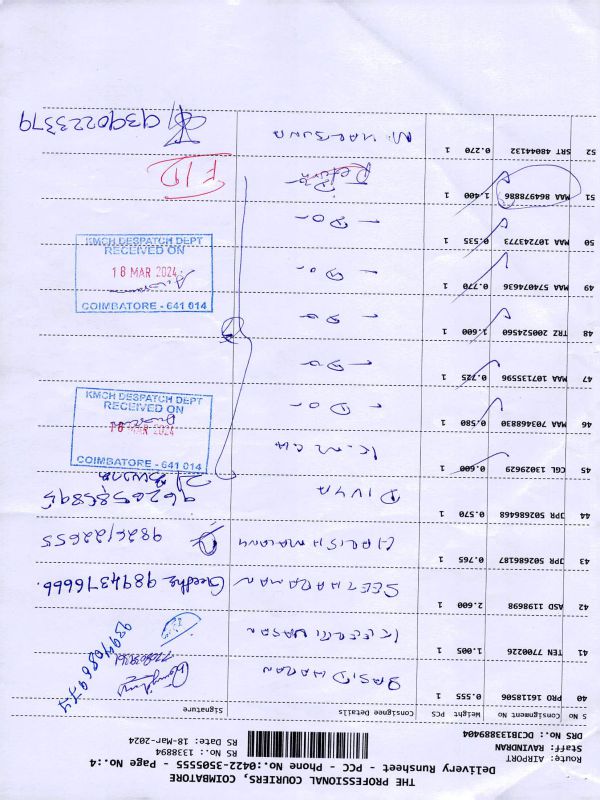 THE PROFESSIONAL COURIERS, COIMBATORE
Delivery Runsheet - PCC - Phone No.:0422-3505555 - Page No.:4
Route: AIRPORT
Staff: RAVINDRAN RS No.: 1338894
DRS No.: DC1B1338894O4 RS Date: 18-Mar-2024
S No Consignment No Weight PCS Consignee Details Signature
40 PRO 16118506 0.555 1 SASIDHARAN
9394686974
41 TEN 7700226 1.005 1 KEERTHIVASAN
42 ASD 1198698 2.600 1 SEETHARAMAN Geetha 9894376666.
43 JPR 502686187 0.765 1 HARISH 9826122655
44 JPR 502686468 0.570 1 DIVYA 9620585895
45 CGL 13029629 0.600 1 K.M.C.H
46 MAA 703468830 0.580 1 - DO -
47 MAA 107135596 0.725 1 - DO -
KMCH DESPATCH DEPT
RECEIVED ON
18 MAR 2024
COIMBATORE - 641 014
48 TRZ 200524560 1.600 1 - DO -
49 MAA 574074636 0.770 1 - DO -
50 MAA 107243773 0.535 1 - DO -
KMCH DESPATCH DEPT
RECEIVED ON
18 MAR 2024
COIMBATORE - 641 014
51 MAA 864978886 1.400 1 FID
52 SRT 48044132 0.270 1 9390223379